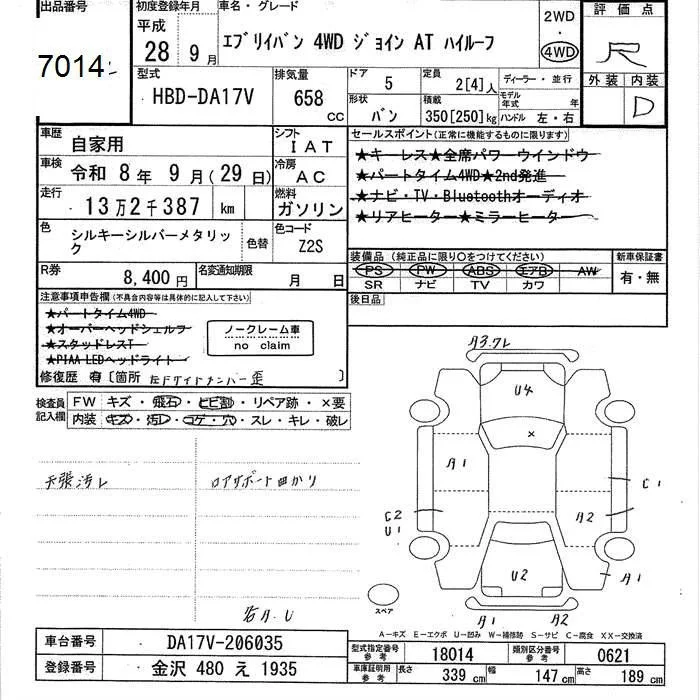 出品番号
7014
初度登録年月
平成
28 年 9 月
車名・グレード
エブリイバン 4WD ジョイン AT ハイルーフ
2WD
・
4WD
評 価 点
R
外 装 内 装
D
型式
HBD-DA17V
排気量
658
CC
ドア
5
定員
2[4]人
ディーラー・並行
形状
バン
積載
350[250]kg
モデル年式 年
ハンドル 左・右
車歴
自家用
シフト
IAT
車検
令和 8 年 9 月 ( 29 日)
冷房
AC
走行
13 万 2 千 387 km
燃料
ガソリン
色
シルキーシルバーメタリック
色替
色コード
Z2S
R券
8,400 円
名変通知期限
月 日
セールスポイント(正常に機能するものに限ります)
★キーレス★全席パワーウインドウ
★パートタイム4WD★2nd発進
★ナビ・TV・Bluetoothオーディオ
★リアヒーター★ミラーヒーター
装備品 (純正品に限り〇をつけてください)
PS PW ABS エアB AW
SR ナビ TV カワ
新車保証書
有・無
後日品
注意事項申告欄(不具合内容等は具体的に記入して下さい)
★パートタイム4WD
★オーバーヘッドシェルフ
★スタッドレスT
★PIAA LEDヘッドライト
ノークレーム車
no claim
修復歴 有 [箇所 左Fサイドメンバー歪 ]
検査員記入欄
FW キズ・飛石・ヒビ割・リペア跡・×要
内装 キズ・汚レ・コゲ・穴・スレ・キレ・破レ
天張汚レ
ロアサポート曲がり
A3.ワレ
U4
×
A1
C1
C2
U1
A2
U2
A1
A1
A2
スペア
A－キズ E－エクボ U－凹み W－補修跡 S－サビ C－腐食 XX－交換済
車台番号
DA17V-206035
登録番号
金沢 480 え 1935
型式指定番号
参考
18014
類別区分番号
参考
0621
車庫証明用
参考
長さ 339 cm 幅 147 cm 高さ 189 cm